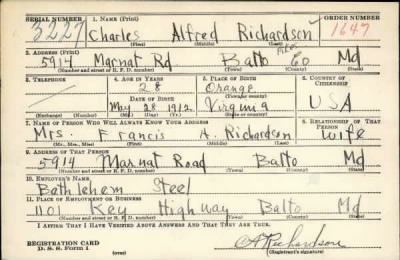 SERIAL NUMBER 1. NAME (Print) ORDER NUMBER
3227 Charles Alfred Richardson 1647
(First) (Middle) (Last)
2. ADDRESS (Print)
5914 Marnat Rd Balto Co Md
(Number and street or R. F. D. number) (Town) (County) (State)
3. TELEPHONE 4. AGE IN YEARS 5. PLACE OF BIRTH 6. COUNTRY OF CITIZENSHIP
28 Orange
DATE OF BIRTH (Town or county)
May 28 1912 Virginia USA
(Exchange) (Number) (Mo.) (Day) (Yr.) (State or country)
7. NAME OF PERSON WHO WILL ALWAYS KNOW YOUR ADDRESS 8. RELATIONSHIP OF THAT PERSON
Mrs. Francis A. Richardson Wife
(Mr., Mrs., Miss) (First) (Middle) (Last)
9. ADDRESS OF THAT PERSON
5914 Marnat Road Balto Md
(Number and street or R. F. D. number) (Town) (County) (State)
10. EMPLOYER'S NAME
Bethlehem Steel
11. PLACE OF EMPLOYMENT OR BUSINESS
1101 Key Highway Balto Md
(Number and street or R. F. D. number) (Town) (County) (State)
I AFFIRM THAT I HAVE VERIFIED ABOVE ANSWERS AND THAT THEY ARE TRUE.
REGISTRATION CARD
D. S. S. Form 1 (over) CARichardson
(Registrant's signature)